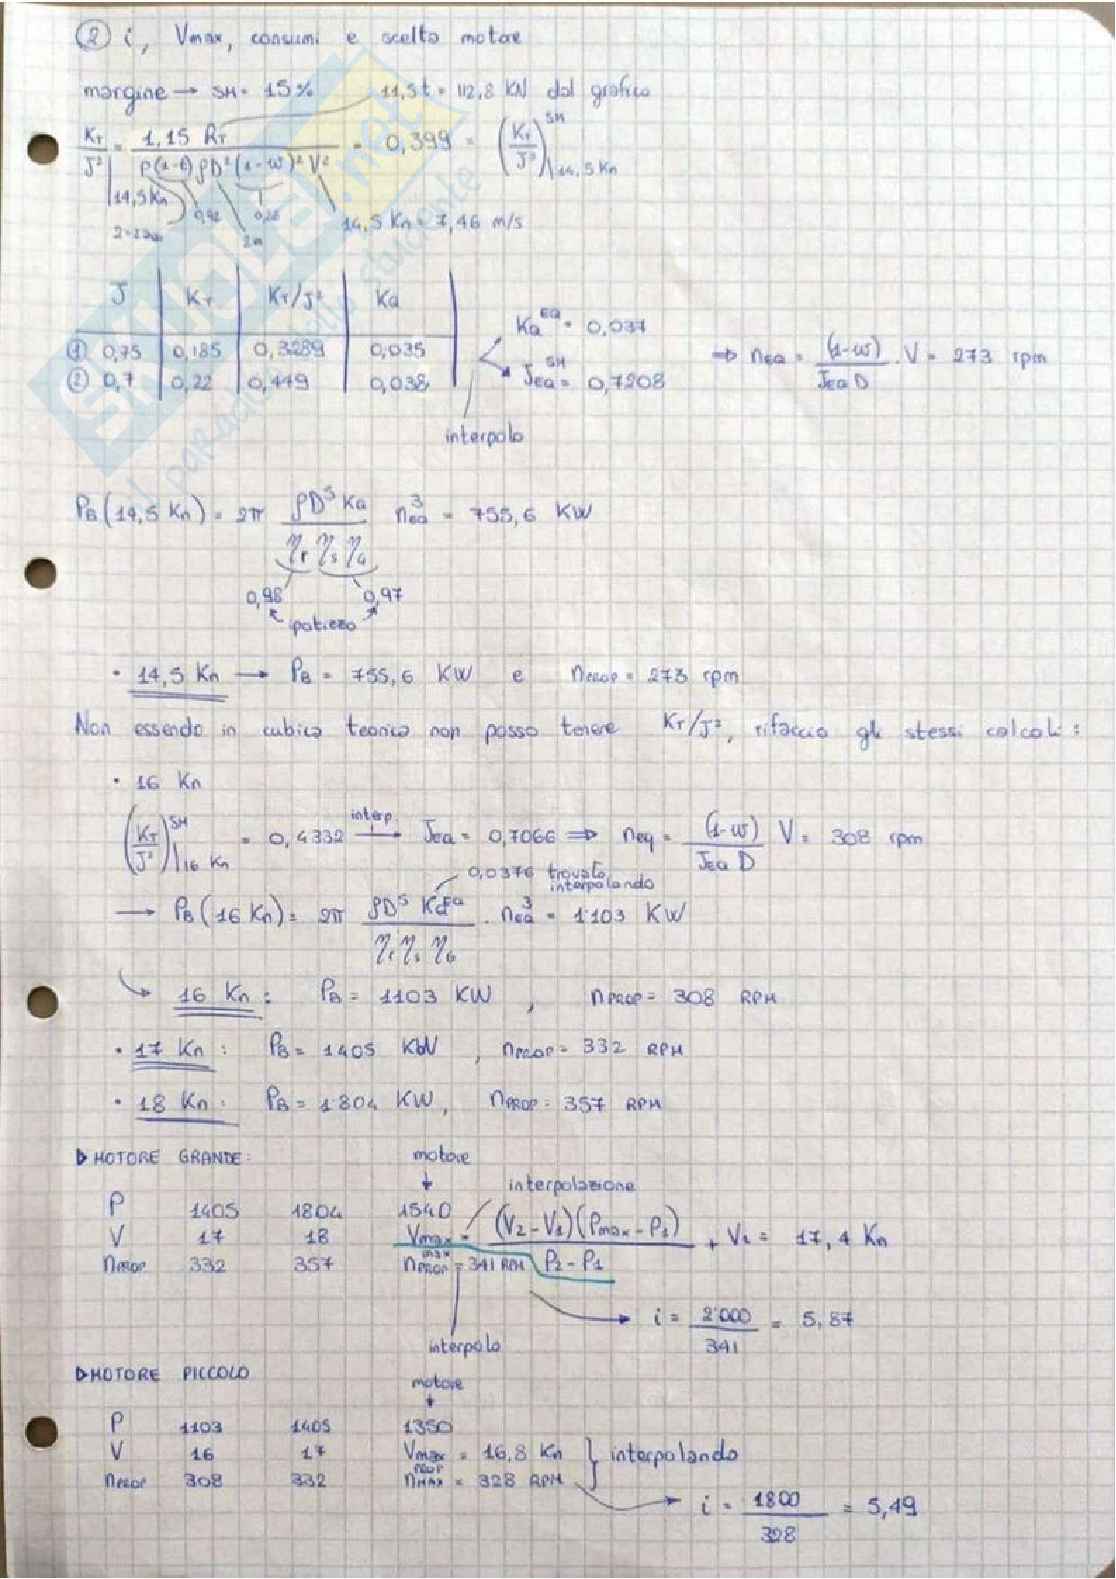 ② i, Vmax, consumi e scelta motore
margine → SM = 15% 11,5t = 112,8 KN dal grafico
KT/J² |14,5 Kn = 1,15 RT / P(1-t)ρD²(1-w)²V² = 0,399 = (KT/J²)^SM |14,5 Kn
0,92 2m 14,5 Kn = 7,46 m/s
J KT KT/J² KQ
① 0,75 0,185 0,3289 0,035
② 0,7 0,22 0,449 0,038
interpolo
KQ^EQ = 0,037
JEQ^SM = 0,7208
⇒ nEQ = (1-w)/JEQ D · V = 273 rpm
PB(14,5 Kn) = 2π ρD⁵ KQ / ηr ηs ηG nEQ³ = 755,6 KW
0,98 ipotizzo 0,97
· 14,5 Kn → PB = 755,6 KW e nPROP = 273 rpm
Non essendo in cubica teorica non posso tenere KT/J², rifaccio gli stessi calcoli:
· 16 Kn
(KT/J²)^SM |16 Kn = 0,4332 interp. → JEQ = 0,7066 ⇒ neq = (1-w)/JEQ D V = 308 rpm
0,0376 trovato interpolando
→ PB(16 Kn) = 2π ρD⁵ KQ^EQ / ηr ηs ηG · nEQ³ = 1'103 KW
16 Kn: PB = 1103 KW, nPROP = 308 RPM
· 17 Kn: PB = 1405 KW, nPROP = 332 RPM
· 18 Kn: PB = 1'804 KW, nPROP = 357 RPM
▷ MOTORE GRANDE: motore interpolazione
P 1405 1804 1540
V 17 18 Vmax = (V2-V1)(Pmax-P1) / P2-P1 + V1 = 17,4 Kn
nPROP 332 357 nPROP^max = 341 RPM
interpolo
i = 2'000/341 = 5,87
▷ MOTORE PICCOLO motore
P 1103 1405 1350
V 16 17 Vmax = 16,8 Kn
nPROP 308 332 nMAX^PROP = 328 RPM
} interpolando
i = 1800/328 = 5,49